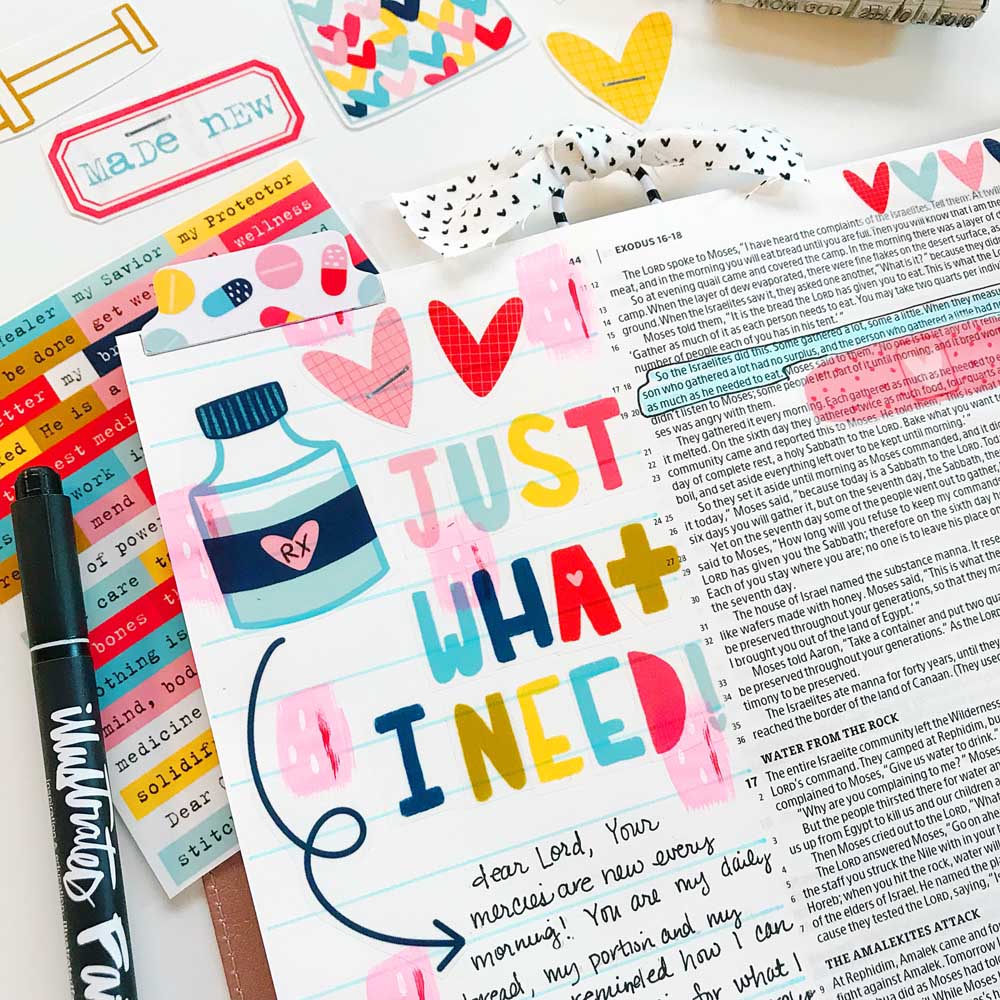 MaDe nEW
my Protector
my Savior
wellness
Healer
get we
be done
my
br
etter
He is a
best medi
work i
mend
of power
care
bones
nothing is
mind, bod
medicine
solidif
Dear
stitc
illustrated Fai
RX
JUST
WHAT
I NEED!
dear Lord, Your
mercies are new every
morning! You are my daily
bread, my portion and my
reminded how I can
for what I
EXODUS 16-18
44
The LORD spoke to Moses, "I have heard the complaints of the Israelites. Tell them: At twil
meat, and in the morning you will eat bread until you are full. Then you will know that I am the
So at evening quail came and covered the camp. In the morning there was a layer of
camp. When the layer of dew evaporated, there were fine flakes on the desert surface, as
ground. When the Israelites saw it, they asked one another, "What is it?" because they di
Moses told them, "It is the bread the LORD has given you to eat. This is what the L
'Gather as much of it as each person needs to eat. You may take two quarts per indi
number of people each of you has in his tent.'"
So the Israelites did this. Some gathered a lot, some a little. When they measu
son who gathered a lot had no surplus, and the person who gathered a little had
as much as he needed to eat. Moses said to them, "No one is to let any of it remain
didn't listen to Moses; some people left part of it until morning, and it bred wor
ses was angry with them.
They gathered it every morning. Each gathered as much as he needed to e
it melted. On the sixth day they gathered twice as much food, four quarts
community came and reported this to Moses. He told them, "This is what
day of complete rest, a holy Sabbath to the LORD. Bake what you want t
boil, and set aside everything left over to be kept until morning."
So they set it aside until morning as Moses commanded, and it di
it today," Moses said, "because today is a Sabbath to the LORD. Toda
six days you will gather it, but on the seventh day, the Sabbath, the
Yet on the seventh day some of the people went out to gather
said to Moses, "How long will you refuse to keep my command
LORD has given you the Sabbath; therefore on the sixth day
Each of you stay where you are; no one is to leave his place o
the seventh day.
The house of Israel named the substance manna. It rese
like wafers made with honey. Moses said, "This is what th
be preserved throughout your generations, so that they ma
I brought you out of the land of Egypt.'"
Moses told Aaron, "Take a container and put two quar
be preserved throughout your generations." As the Lord
timony to be preserved.
The Israelites ate manna for forty years, until they
reached the border of the land of Canaan. (They used
WATER FROM THE ROCK
17 The entire Israelite community left the Wilderness
LORD's command. They camped at Rephidim, but
complained to Moses, "Give us water to drink."
"Why are you complaining to me?" Moses
But the people thirsted there for water and
us up from Egypt to kill us and our children
Then Moses cried out to the LORD, "What
The LORD answered Moses, "Go on ahe
the staff you struck the Nile with in your h
Horeb; when you hit the rock, water will
of the elders of Israel. He named the p
cause they tested the LORD, saying, "Is
THE AMALEKITES ATTACK
At Rephidim, Amalek came and fo
fight against Amalek. Tomorrow I